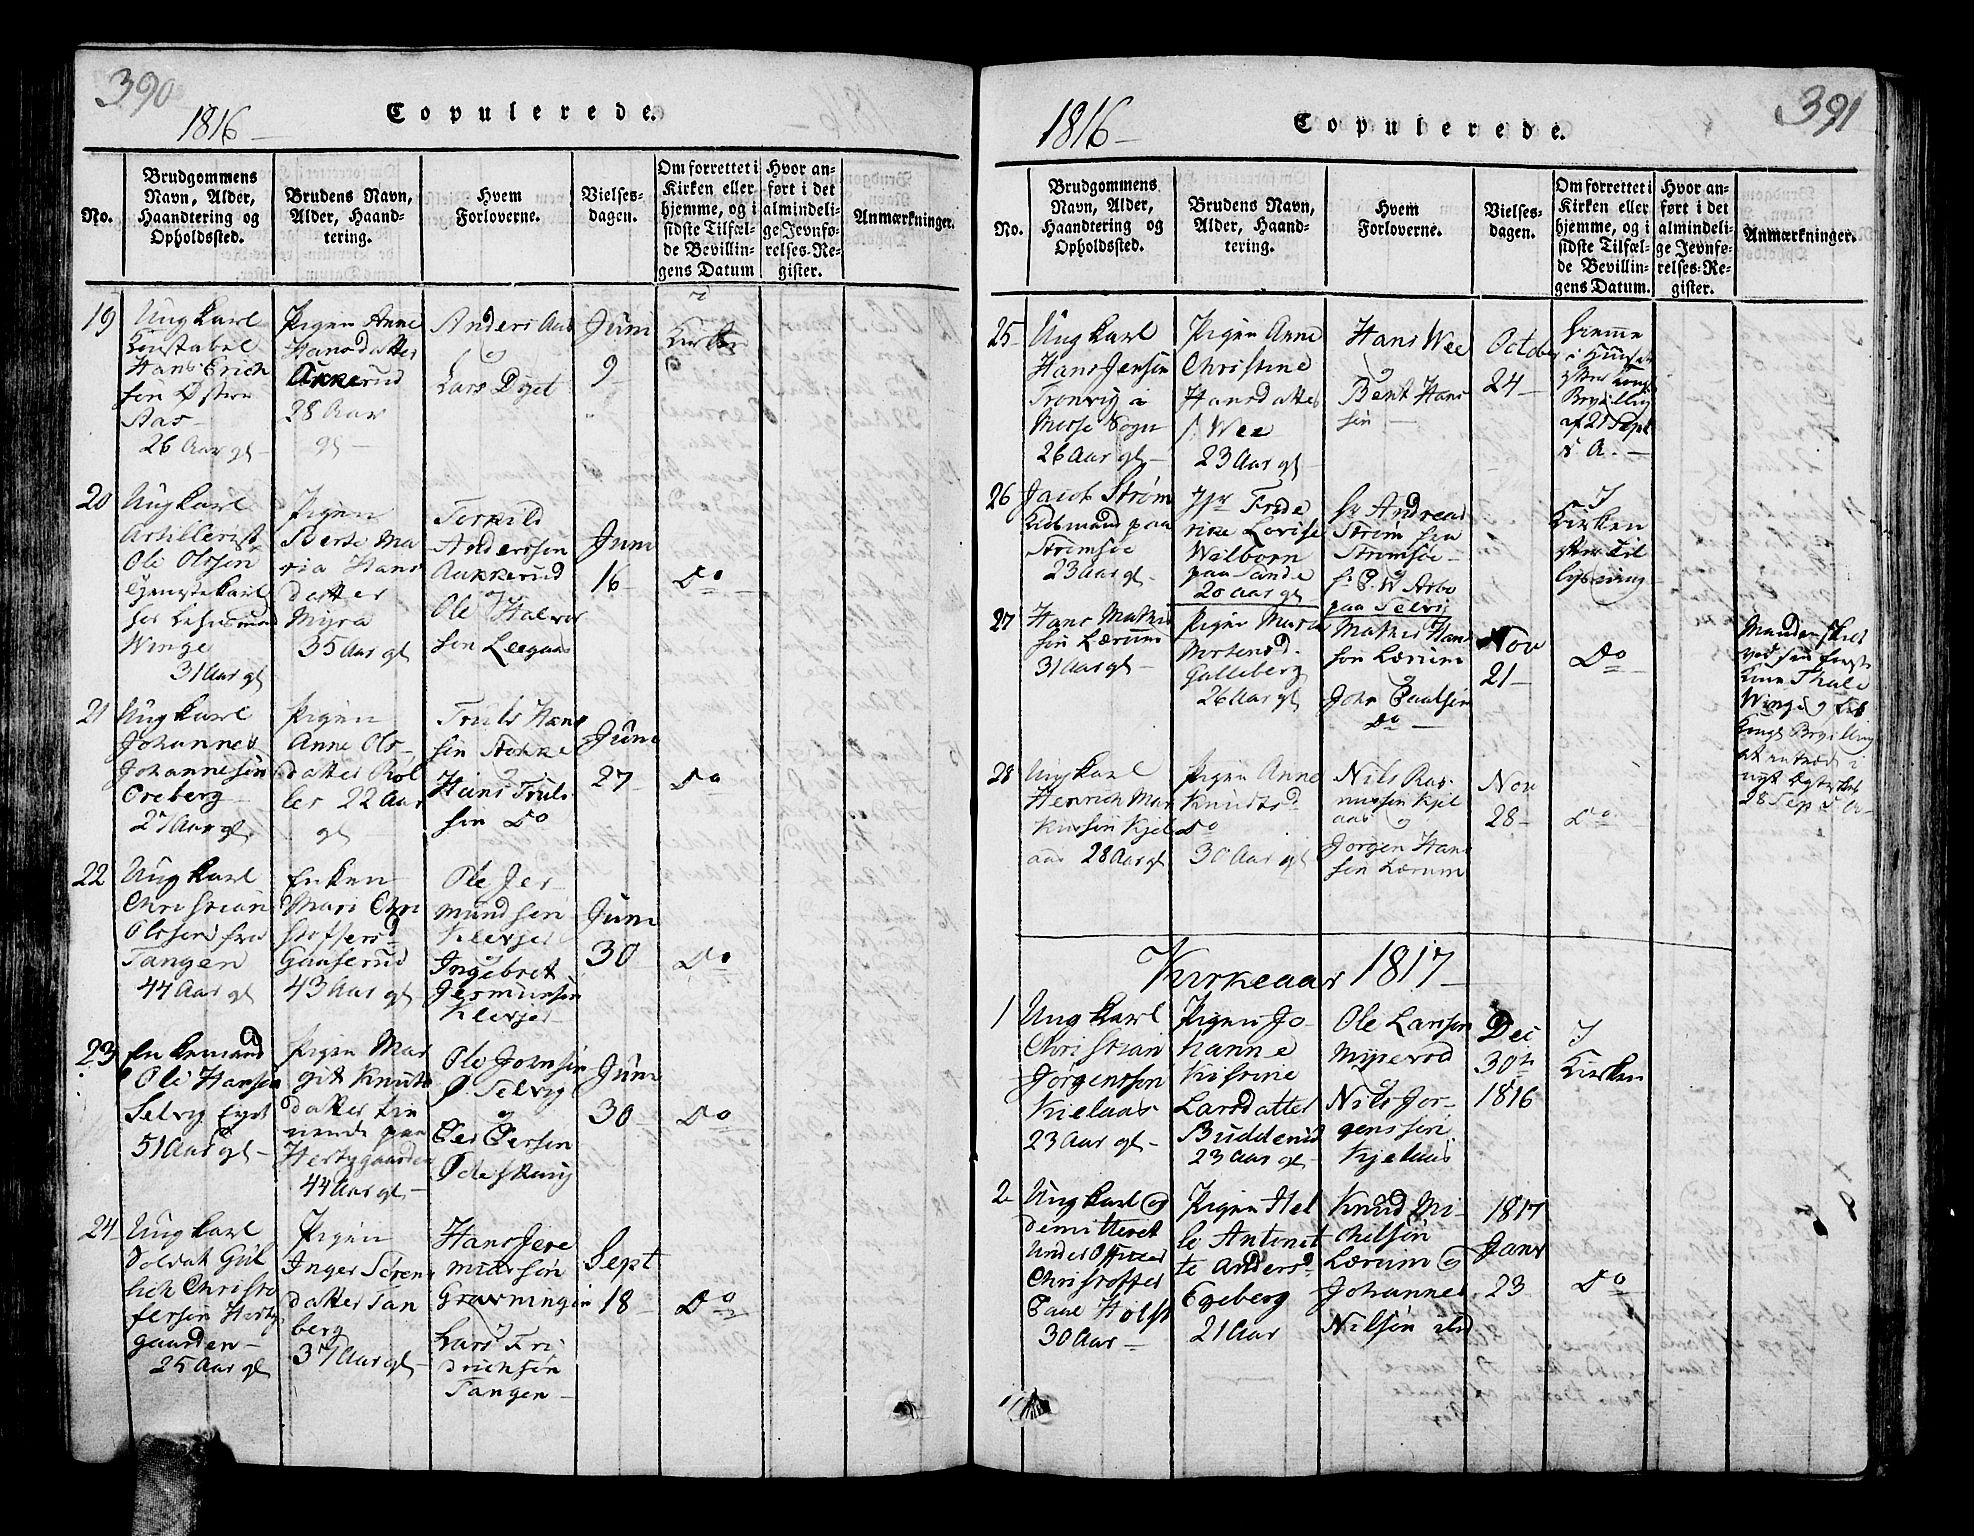 390
1816
Copulerede.
No.
Brudgommens
Navn, Alder,
Haandtering og
Opholdssted.
Brudens Navn,
Alder, Haand-
tering.
Hvem
Forloverne.
Vielses-
dagen.
Om forrettet i
Kirken eller
hjemme, og i
sidste Tilfæl-
de Bevillin-
gens Datum
Hvor an-
ført i det
almindeli-
ge Jevnfø-
relses-Re-
gister.
Anmærkninger.
19
Ungkarl
Hans Erich
sön Östern
Aas
26 Aar gl
Pigen Anne
Hansdatter
28 Aar
gl
Anders Aas
og
Lars
Juni
9
i
Kirken
20
Ungkarl
Artillerist
Ole Olssen
Tjenestekarl
hos
Winge
31 Aar gl
Pigen
Berte Ma
ria Hans
datter
Myra
35 Aar gl
Torkild
Anderssön
Aukkerud
og
Ole Halvor
sön
Juni
16
Do
21
Ungkarl
Johannes
Johannesön
Oreberg
27 Aar gl
Pigen
Anne Ols-
datter Röl
les 22 Aar
gl
Truls Hans
sön Stokke
og
Hans Truls
sön Do
Juni
27
Do
22
Ungkarl
Christian
Olssen fra
Tangen
44 Aar gl
Enken
Mari Chri
stoffersd
Gaaserud
43 Aar gl
Ole Jer
mundsön
Klevjer
og
Ingebret
Jermunsön
Klevjer
Juni
30
Do
23
Enkemand
Ole Hansen
Selvig
51 Aar gl
Pigen Mar
git Knuts
datter
paa
Hertygaarden
44 Aar gl
Ole Johnsön
Ø. Selvig
og
Per Persön
Ødeskaug
Juni
30
Do
24
Ungkarl
Soldat Gul
lich Christo
fersön Herty
gaarden
25 Aar gl
Pigen
Inger Sörens
datter Tan
berg
37 Aar gl
Hans Jere
miassön
Gravningen
og
Lars Fri
drichsön
Tangen
Sept
18
Do
391
1816
Copulerede.
No.
Brudgommens
Navn, Alder,
Haandtering og
Opholdssted.
Brudens Navn,
Alder, Haand-
tering.
Hvem
Forloverne.
Vielses-
dagen.
Om forrettet i
Kirken eller
hjemme, og i
sidste Tilfæl-
de Bevillin-
gens Datum.
Hvor an-
ført i det
almindeli-
ge Jevnfø-
relses-Re-
gister.
Anmærkninger.
25
Ungkarl
Hans Jensön
Tronvig i
Sogn
26 Aar gl
Pigen Anne
Christine
Hansdatter
Wee
23 Aar gl
Hans Wee
og
Bent Han
sön
October
24
hiemme
i Huuset
efter Kongl
Bevilling
af 21 Sept
s A.
26
Jacob Ström
paa
Strömsöe
23 Aar gl
Jfr Frede
rike Lovise
Walborn
paa Sande
20 Aar gl
Hr Andreas
Ström fra
Strömsöe
og
P. W Arbo
paa Selvig
I
Kirken
efter Til
lysning
27
Hans Mathis
sön Lærum
31 Aar gl
Pigen Maria
Mortensd.
Galleberg
26 Aar gl
Mathis Han
sön Lærum
og
John Paulsön
Do
Nov
21
Do
Manden skilt
ved sin første
Kone Thale
Winge og
Kongl Bevilling
at indtræde i
nyt Ægteskab
28 Sep s A
28
Ungkarl
Henrich Mar
kussön Kjel
aas 28 Aar gl
Pigen Anne
Knudtsd
Do
30 Aar gl
Nils Ras
mussön Kjel
aas og
Jörgen Hans
sön Lærum
Nov
28
Do
Kirkeaar 1817
1
Ungkarl
Christian
Jörgenssön
Kielaas
23 Aar gl
Pigen Jo-
hanne
Kistine
Larsdatter
Budderud
23 Aar gl
Ole Larsön
Myperöd
og
Nils Jör-
genssön
Kjelaas
Dec
30te
1816
I
Kirken
2
Ungkarl og
demitteret
Under Officer
Christoffer
Paul Holst
30 Aar
Pigen Hel
le Antonet
te Andersd
Egeberg
21 Aar
Knud Mi-
chelsön
Lærum og
Johannes
Nilsön
1817
Janr
23
Do